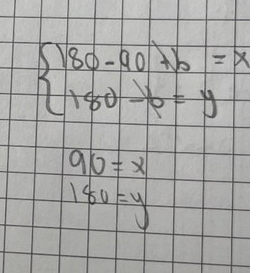 180-90+b=x
180-b=y
90=x
180=y